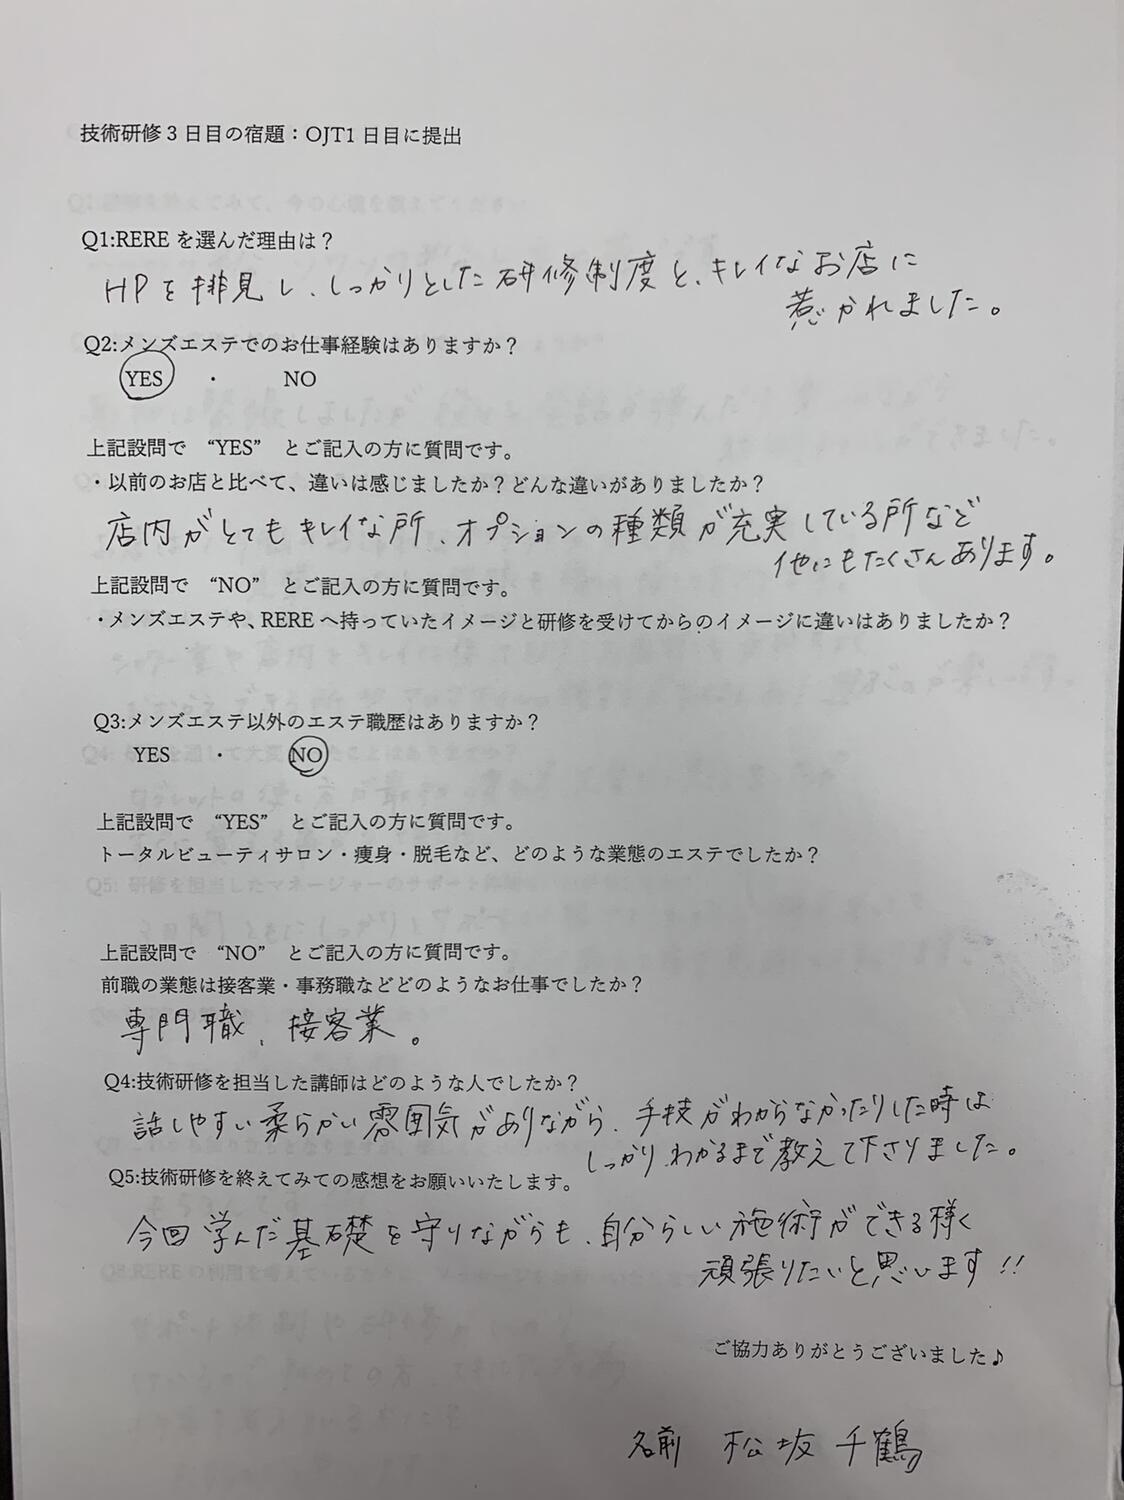 技術研修3日目の宿題：OJT1日目に提出
Q1:REREを選んだ理由は？
HPを排見し、しっかりとした研修制度と、キレイなお店に
惹かれました。
Q2:メンズエステでのお仕事経験はありますか？
YES ・ NO
上記設問で “YES” とご記入の方に質問です。
・以前のお店と比べて、違いは感じましたか？どんな違いがありましたか？
店内がとてもキレイな所、オプションの種類が充実している所など
他にもたくさんあります。
上記設問で “NO” とご記入の方に質問です。
・メンズエステや、REREへ持っていたイメージと研修を受けてからのイメージに違いはありましたか？
Q3:メンズエステ以外のエステ職歴はありますか？
YES ・ NO
上記設問で “YES” とご記入の方に質問です。
トータルビューティサロン・痩身・脱毛など、どのような業態のエステでしたか？
上記設問で “NO” とご記入の方に質問です。
前職の業態は接客業・事務職などどのようなお仕事でしたか？
専門職、接客業。
Q4:技術研修を担当した講師はどのような人でしたか？
話しやすい柔らかい雰囲気がありながら、手技がわからなかったりした時は
しっかりわかるまで教えて下さりました。
Q5:技術研修を終えてみての感想をお願いいたします。
今回学んだ基礎を守りながらも、自分らしい施術ができる様く
頑張りたいと思います!!
ご協力ありがとうございました♪
名前 松坂 千鶴